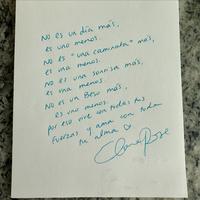 No es un día más,
es uno menos.
No es "una caminata" más,
es una menos.
No es una sonrisa más,
es una menos.
No es un Beso más,
es uno menos.
Por eso vive con todas tus
fuerzas y ama con toda
tu alma ♡